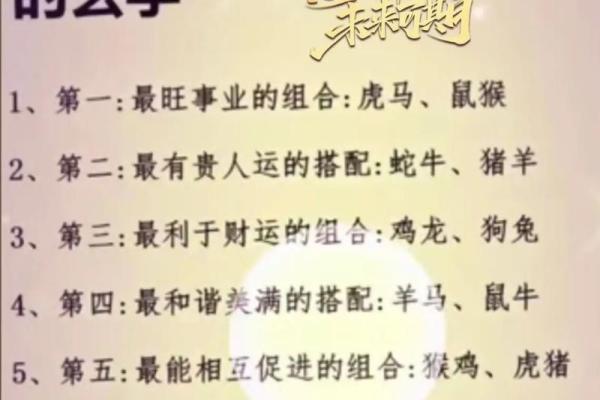 的公字
未来可期
1、第一:最旺事业的组合:虎马、鼠猴
2、第二:最有贵人运的搭配:蛇牛、猪羊
3、第三:最利于财运的组合:鸡龙、狗兔
4、第四:最和谐美满的搭配:羊马、鼠牛
5、第五:最能相互促进的组合:猴鸡、虎猪